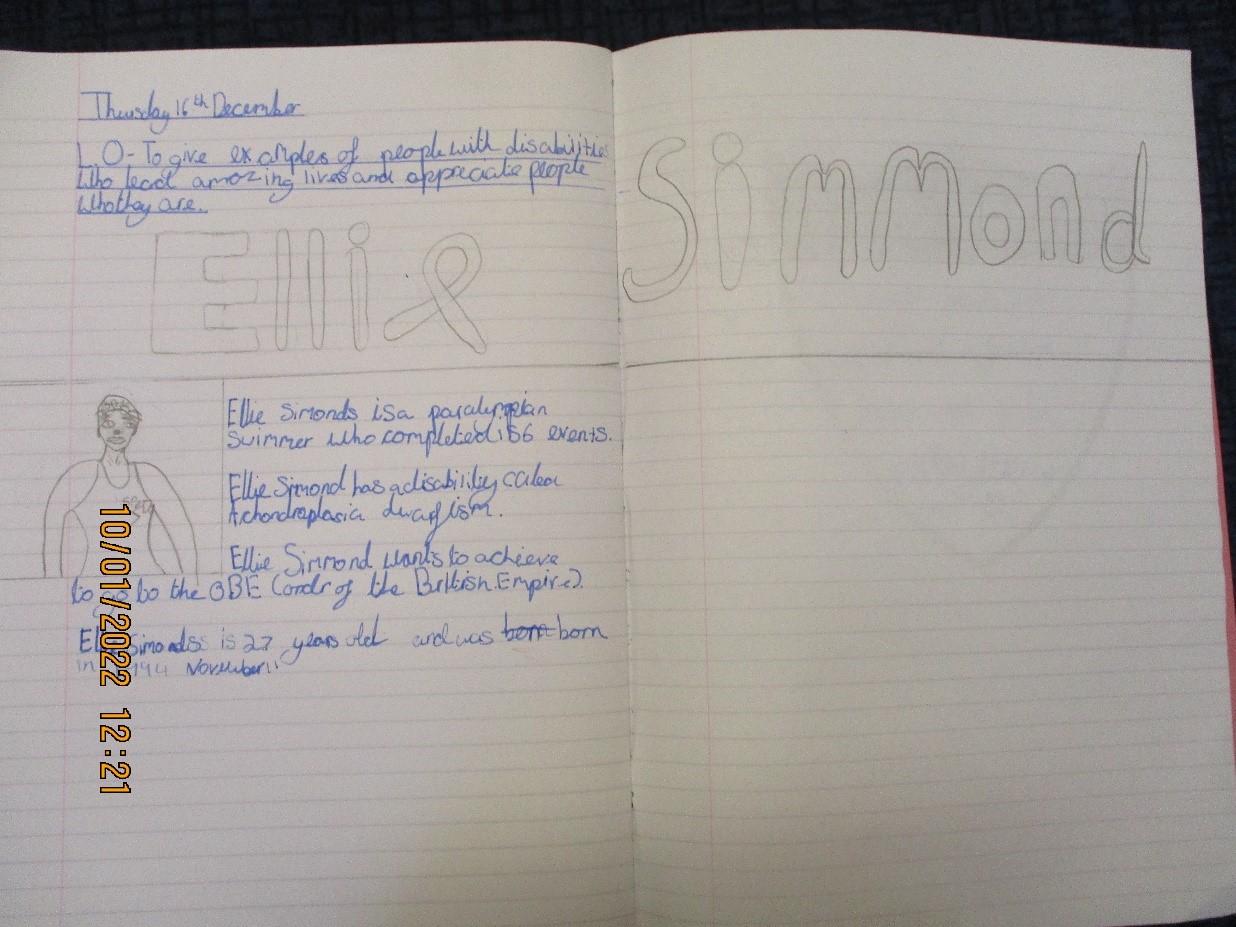 Thursday 16th December
L.O- To give examples of people with disabilities
who lead amazing lives and appreciate people
who they are.
Ellie Simmond
Ellie Simonds is a paralympian
swimmer who completed 156 events.
Ellie Simond has a disability caled
Achondraplasia dwarfism.
SPEED
Ellie Simmond wants to achieve
to go to the OBE (ordr of the British Empire).
Ellie Simondss is 27 years old and was born born
in 1994 November!!
10/01/2022 12:21